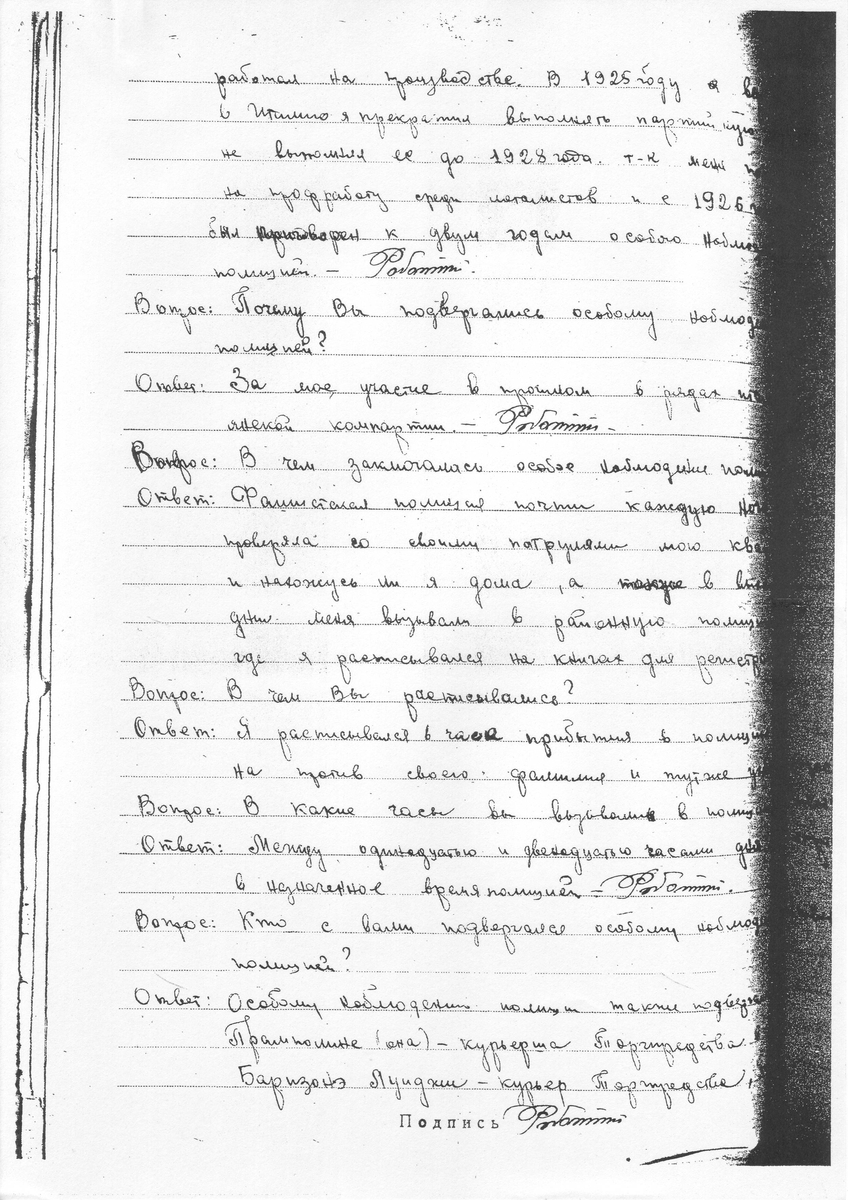 работал на производстве. В 1925 году я
в Италию я прекратил выполнять партийную
не выполнял ее до 1928 года. т-к меня
на профработу среди металистов и с 1926
был приговорен к двум годам особого наблю
полицией. — Роботти.
Вопрос: Почему Вы подвергались особому наблюд
полицией?
Ответ: За мое участие в прошлом в рядах ита
янской компартии. — Роботти
Вопрос: В чем заключалась особое наблюдение поли
Ответ: Фашистская полиция почти каждую ноч
проверяла со своими патрулями мою ква
и нахожусь ли я дома, а также в
дни меня вызывали в районную полиц
где я расписывался на книгах для регистра
Вопрос: В чем Вы расписывались?
Ответ: Я расписывался в часе прибытия в полици
на против своего фамилия и тут же
Вопрос: В какие часы вы вызывались в полици
Ответ: Между одинадцатью и двенадцатью часами дня
в назначенное время полицией — Роботти.
Вопрос: Кто с вами подвергался особому наблюд
полицией?
Ответ: Особому наблюдению полиции также подверга
Прамполине (она) — курьерша Торгпредства
Баризонэ Луиджи — курьер Торгпредства
Подпись Роботти